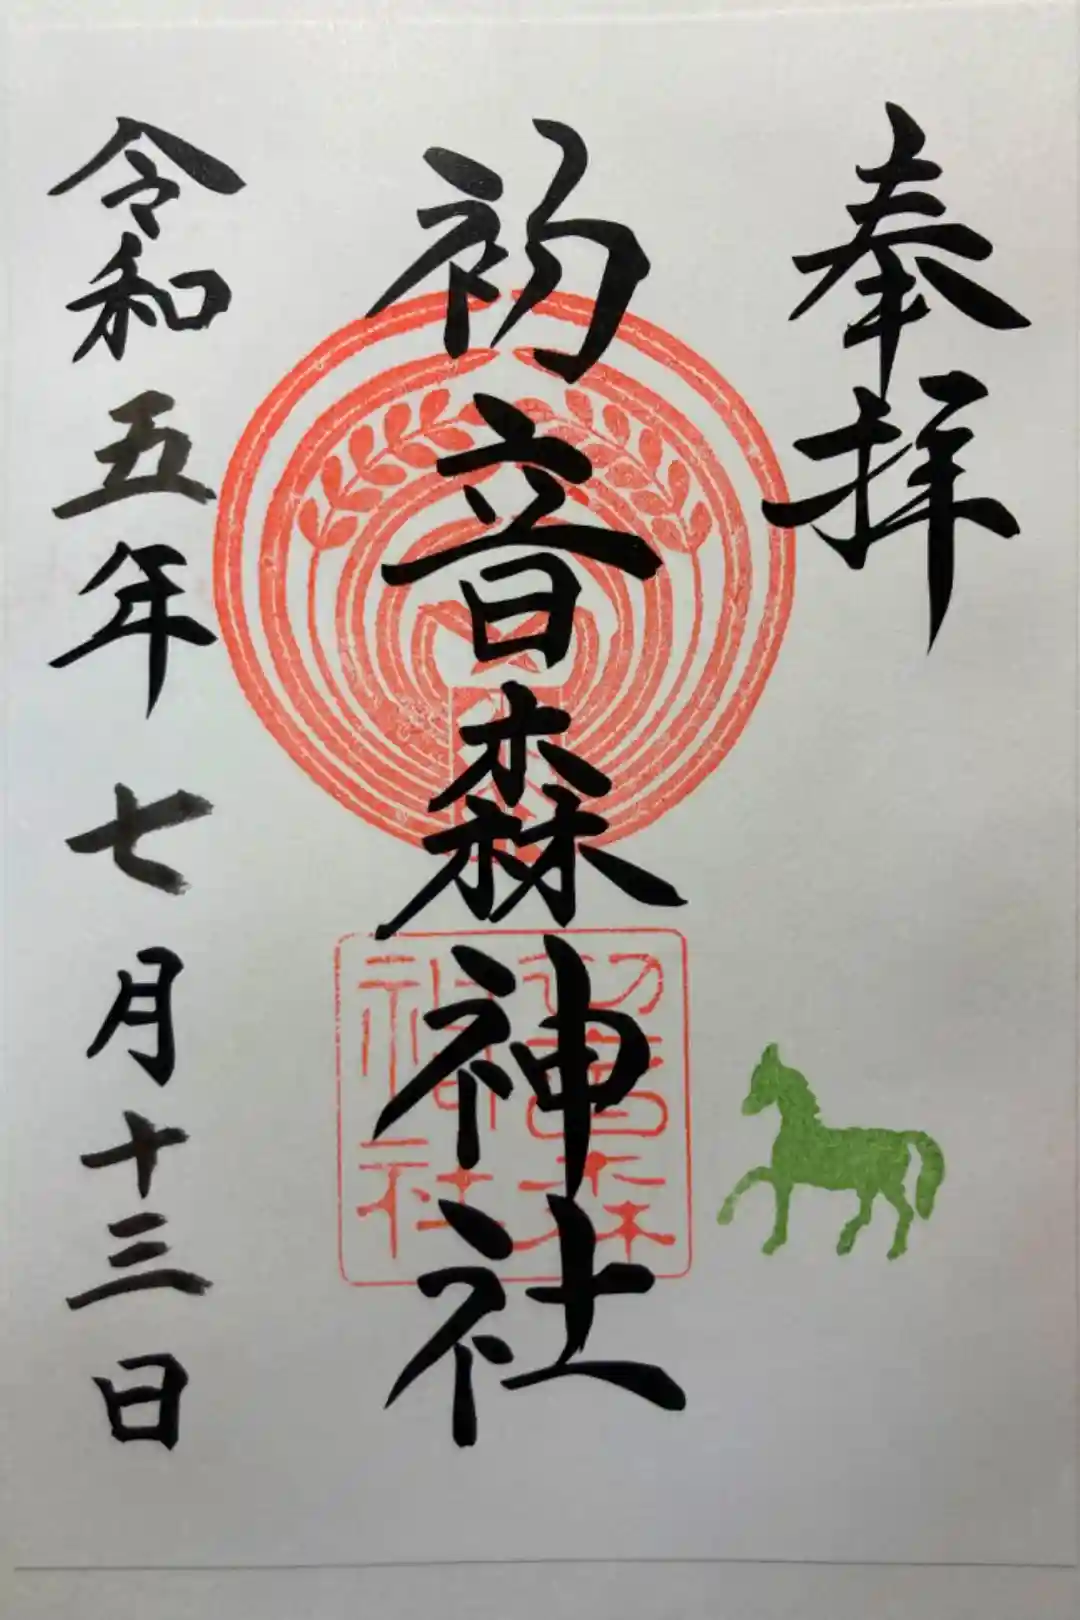 奉拝
初音森神社
初音森
神社
令和五年 七月十三日